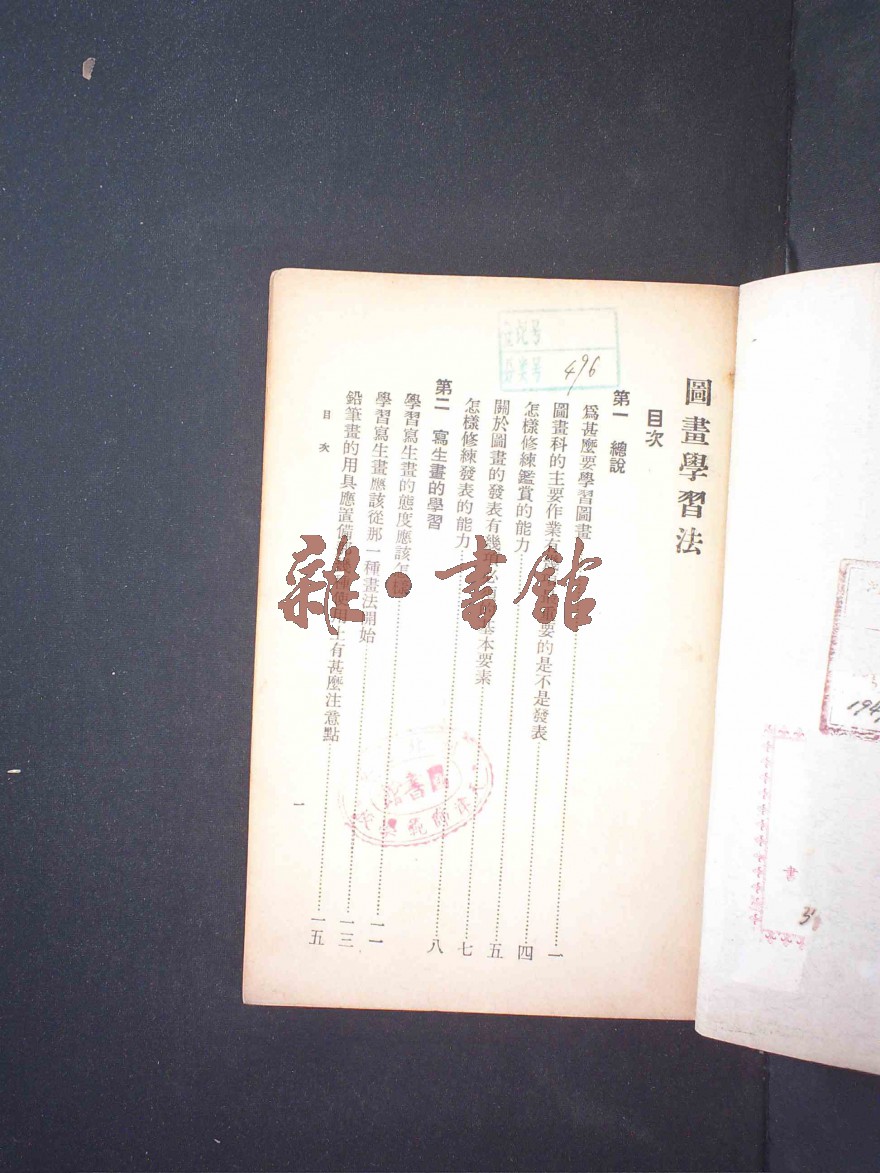 圖畫學習法
目次
第一 總說
爲甚麼要學習圖畫……一
圖畫科的主要作業有 要的是不是發表……四
怎樣修練鑑賞的能力……五
關於圖畫的發表有幾 基本要素……七
怎樣修練發表的能力……八
第二 寫生畫的學習
學習寫生畫的態度應該怎樣……一一
學習寫生畫應該從那一種畫法開始……一三
鉛筆畫的用具應置備 使用上有甚麼注意點……一五
目次
一
登記号
分类号 496
雜·書館
圖書館
師範學
書